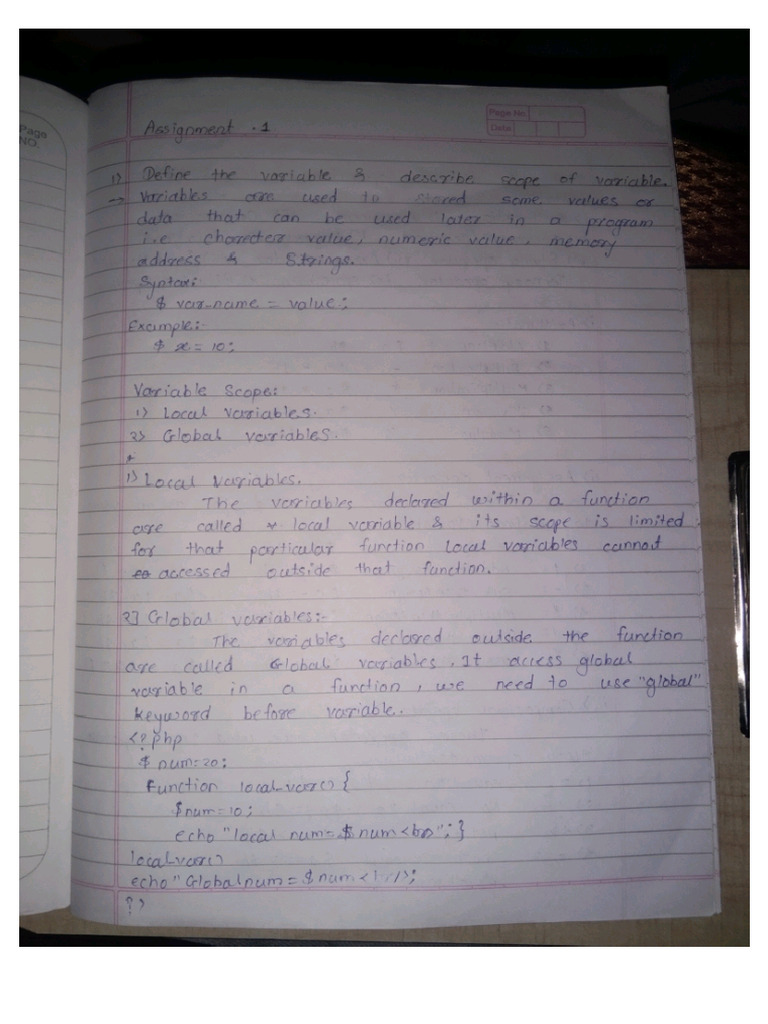 Page
NO.
Page No.
Date
Assignment . 1
1) Define the variable & describe scope of variable.
→ Variables are used to stored some values or
data that can be used later in a program
i.e character value, numeric value, memory
address & Strings.
Syntax:
$ var-name = value;
Example:-
$ x = 10;
Variable Scope:
1) Local variables.
2) Global variables.
1) Local Variables.
The variables declared within a function
are called local variable & its scope is limited
for that particular function local variables cannot
accessed outside that function.
2] Global variables:-
The variables declared outside the function
are called Global variables. It access global
variable in a function, we need to use "global"
keyword before variable.
<?php
$ num=20;
Function local-var() {
$num=10;
echo "local num= $ num <br>"; }
local-var()
echo "Global num = $ num <br/>;
?>